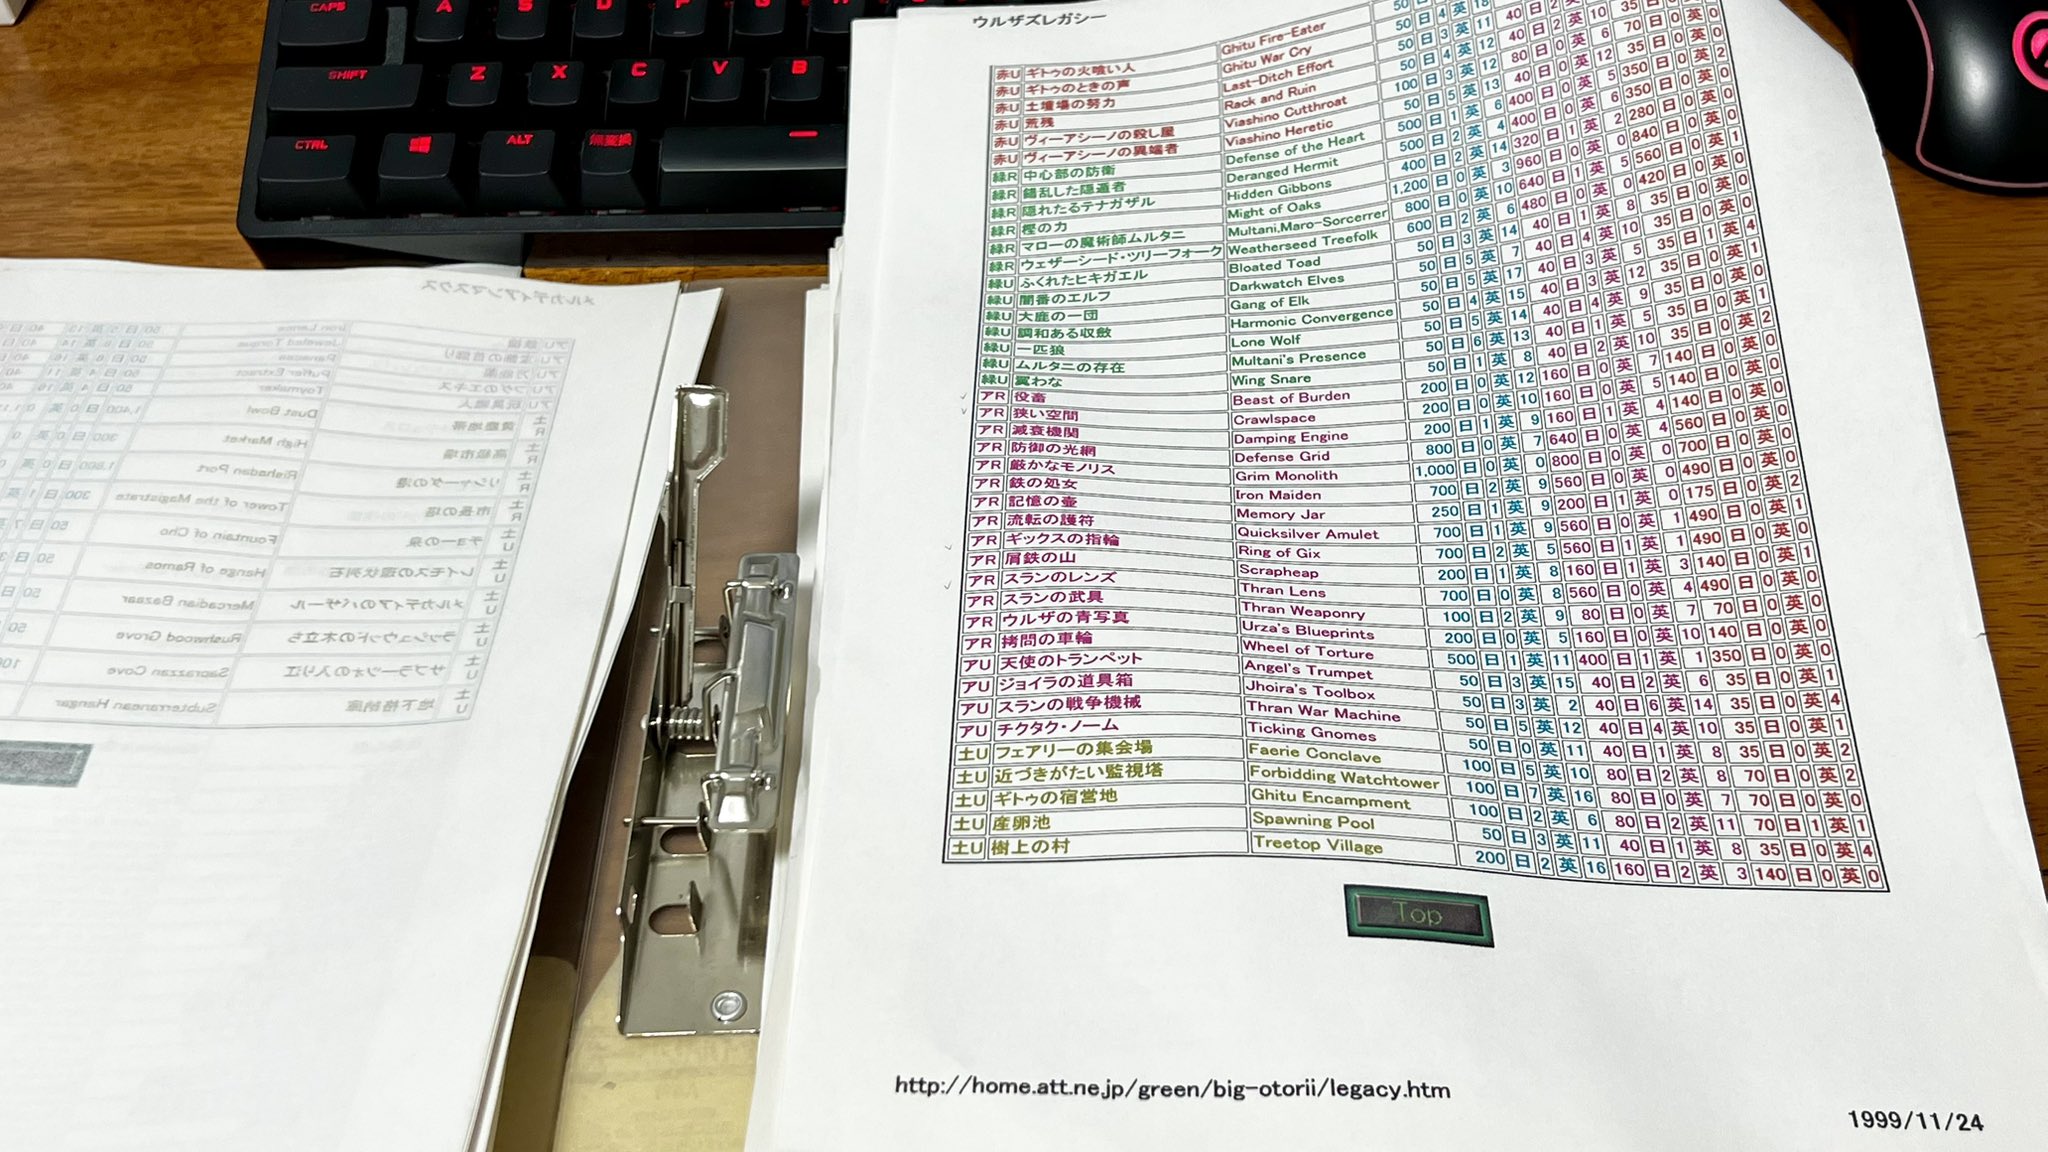 CAPS A S D F G
SHIFT Z X C V B
CTRL ALT 無変換
メルカディアンマスクス
アU Iron Lance
アU Jeweled Torque
アU Panacea
アU フグのエキス Puffer Extract
アU 玩具職人 Toymaker
土R 黄塵地帯 Dust Bowl
土R 高級市場 High Market
土R リシャーダの港 Rishadan Port
土R 市長の塔 Tower of the Magistrate
土U チョーの泉 Fountain of Cho
土U レイモスの環状列石 Henge of Ramos
土U メルカディアのバザール Mercadian Bazaar
土U ラッシュウッドの木立ち Rushwood Grove
土U サプラーツォの入り江 Saprazzan Cove
土U 地下格納庫 Subterranean Hangar
ウルザズレガシー
赤U ギトゥの火喰い人 Ghitu Fire-Eater
赤U ギトゥのときの声 Ghitu War Cry
赤U 土壇場の努力 Last-Ditch Effort 50 日 3 英 11
赤U 荒残 Rack and Ruin 50 日 4 英 12 40 日 2 英 10 35
赤U ヴィーアシーノの殺し屋 Viashino Cutthroat 100 日 3 英 12 80 日 0 英 6 70
赤U ヴィーアシーノの異端者 Viashino Heretic 50 日 5 英 13 40 日 0 英 12 35
緑R 中心部の防衛 Defense of the Heart 500 日 1 英 6 400 日 0 英 5 350
緑R 錯乱した隠遁者 Deranged Hermit 500 日 2 英 4 400 日 0 英 6 350
緑R 隠れたるテナガザル Hidden Gibbons 400 日 2 英 14 320 日 1 英 2 280 日 0 英 0
緑R 樫の力 Might of Oaks 1,200 日 0 英 3 960 日 0 英 0 840 日 0 英 0
緑R マローの魔術師ムルタニ Multani,Maro-Sorcerrer 800 日 0 英 10 640 日 1 英 5 560 日 0 英 1
緑R ウェザーシード・ツリーフォーク Weatherseed Treefolk 600 日 2 英 6 480 日 0 英 0 420 日 0 英 0
緑U ふくれたヒキガエル Bloated Toad 50 日 3 英 14 40 日 1 英 8 35 日 0 英 0
緑U 闇番のエルフ Darkwatch Elves 50 日 5 英 7 40 日 4 英 10 35 日 0 英 0
緑U 大鹿の一団 Gang of Elk 50 日 5 英 17 40 日 3 英 5 35 日 1 英 4
緑U 調和ある収斂 Harmonic Convergence 50 日 4 英 15 40 日 3 英 12 35 日 0 英 1
緑U 一匹狼 Lone Wolf 50 日 5 英 14 40 日 4 英 9 35 日 0 英 0
緑U ムルタニの存在 Multani's Presence 50 日 6 英 13 40 日 1 英 5 35 日 0 英 1
緑U 翼わな Wing Snare 50 日 1 英 8 40 日 2 英 10 35 日 0 英 2
アR 役畜 Beast of Burden 200 日 0 英 12 160 日 0 英 7 140 日 0 英 0
アR 狭い空間 Crawlspace 200 日 0 英 10 160 日 0 英 5 140 日 0 英 0
アR 減衰機関 Damping Engine 200 日 1 英 9 160 日 1 英 4 140 日 0 英 0
アR 防御の光網 Defense Grid 800 日 0 英 7 640 日 0 英 4 560 日 0 英 0
アR 厳かなモノリス Grim Monolith 1,000 日 0 英 0 800 日 0 英 0 700 日 0 英 0
アR 鉄の処女 Iron Maiden 700 日 2 英 9 560 日 0 英 0 490 日 0 英 0
アR 記憶の壺 Memory Jar 250 日 1 英 9 200 日 1 英 0 175 日 0 英 2
アR 流転の護符 Quicksilver Amulet 700 日 1 英 9 560 日 0 英 1 490 日 0 英 1
アR ギックスの指輪 Ring of Gix 700 日 2 英 5 560 日 1 英 1 490 日 0 英 0
アR 屑鉄の山 Scrapheap 200 日 1 英 8 160 日 1 英 3 140 日 0 英 0
アR スランのレンズ Thran Lens 700 日 0 英 8 560 日 0 英 4 490 日 0 英 1
アR スランの武具 Thran Weaponry 100 日 2 英 9 80 日 0 英 7 70 日 0 英 0
アR ウルザの青写真 Urza's Blueprints 200 日 0 英 5 160 日 0 英 10 140 日 0 英 0
アR 拷問の車輪 Wheel of Torture 500 日 1 英 11 400 日 1 英 1 350 日 0 英 0
アU 天使のトランペット Angel's Trumpet 50 日 3 英 15 40 日 2 英 6 35 日 0 英 1
アU ジョイラの道具箱 Jhoira's Toolbox 50 日 3 英 2 40 日 6 英 14 35 日 0 英 4
アU スランの戦争機械 Thran War Machine 50 日 5 英 12 40 日 4 英 10 35 日 0 英 1
アU チクタク・ノーム Ticking Gnomes 50 日 0 英 11 40 日 1 英 8 35 日 0 英 2
土U フェアリーの集会場 Faerie Conclave 100 日 5 英 10 80 日 2 英 8 70 日 0 英 2
土U 近づきがたい監視塔 Forbidding Watchtower 100 日 7 英 16 80 日 0 英 7 70 日 0 英 0
土U ギトゥの宿営地 Ghitu Encampment 100 日 2 英 6 80 日 2 英 11 70 日 1 英 1
土U 産卵池 Spawning Pool 50 日 3 英 11 40 日 1 英 8 35 日 0 英 4
土U 樹上の村 Treetop Village 200 日 2 英 16 160 日 2 英 3 140 日 0 英 0
Top
http://home.att.ne.jp/green/big-otorii/legacy.htm
1999/11/24